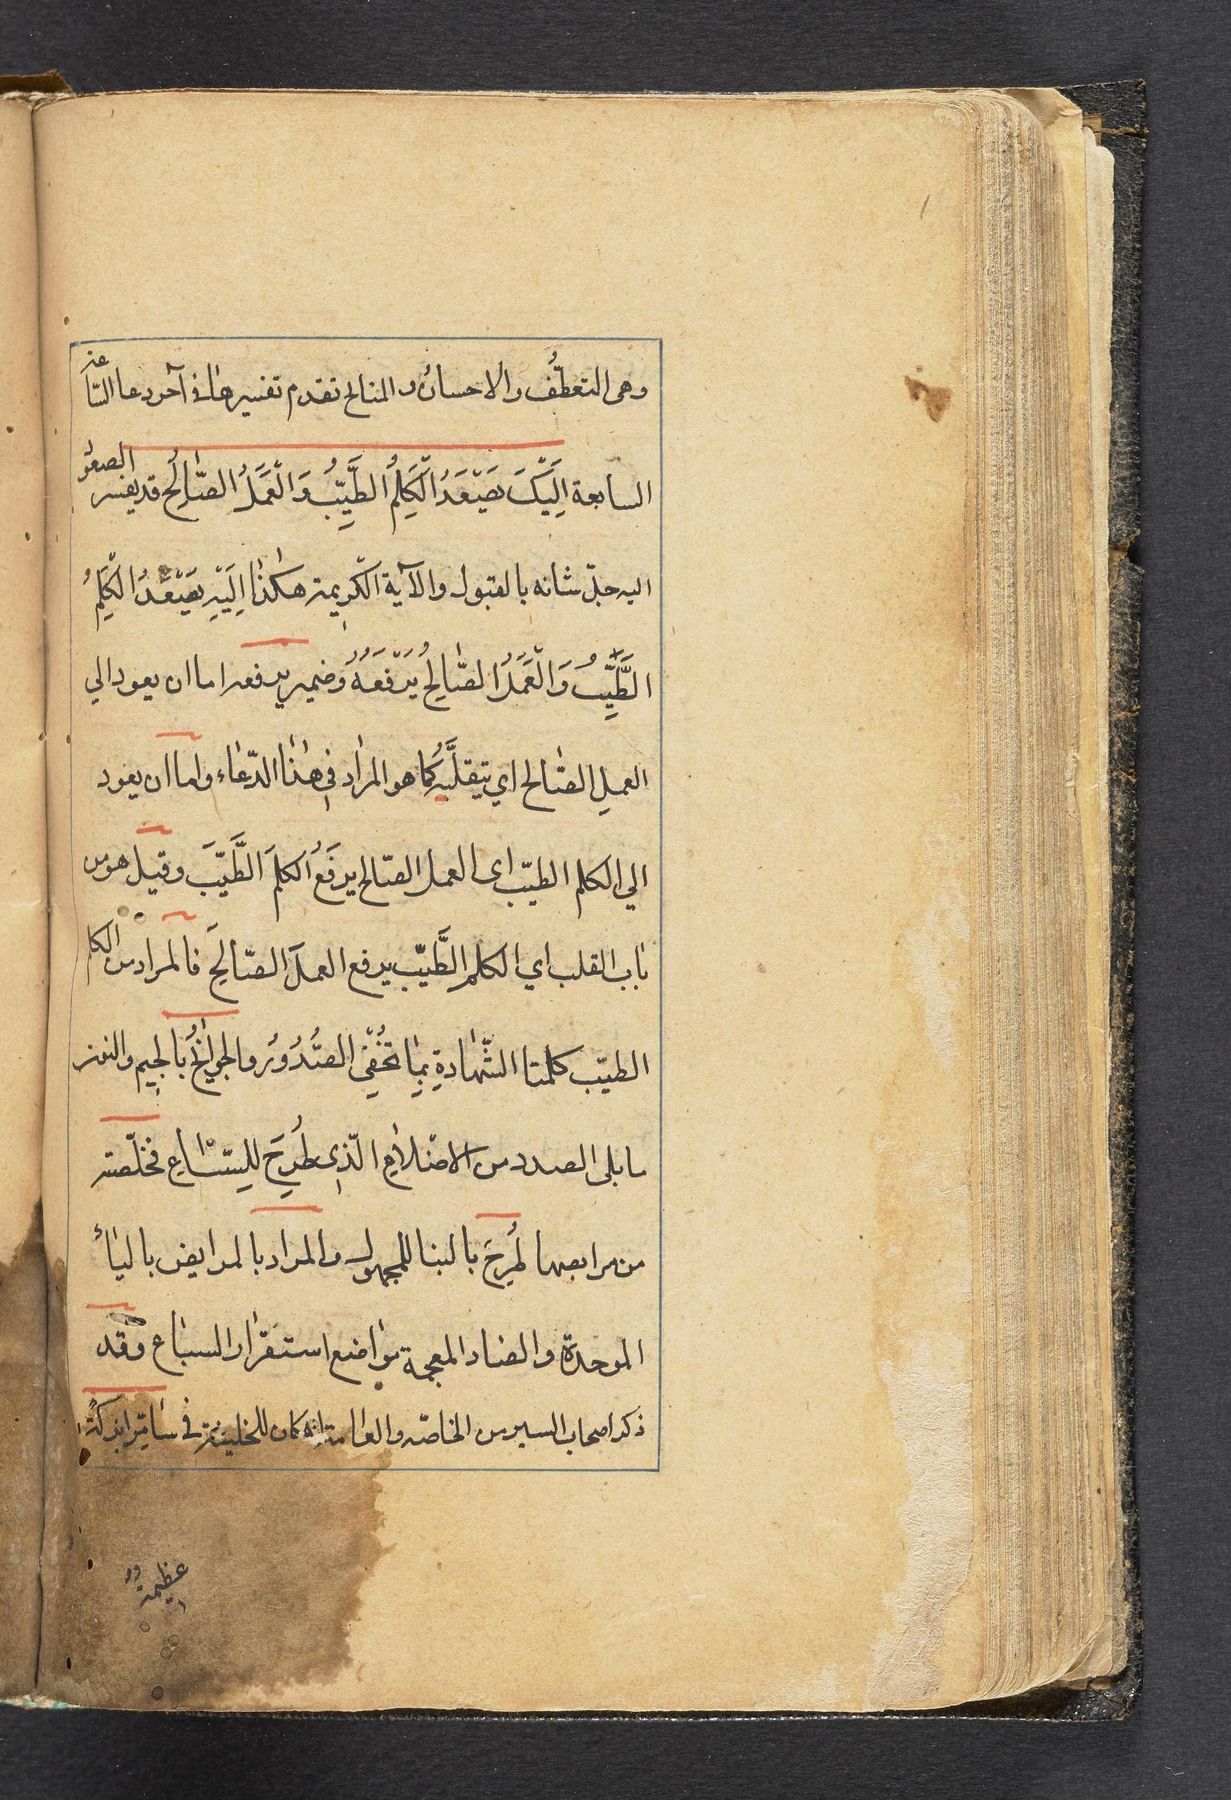 وهى التعطُّف والاحسان والمنائح تقدم تفسيرها فى آخر دعا السّاعة
السابعة اِلَيْكَ يَصْعَدُ الْكَلِمُ الطَّيِّبُ وَالْعَمَلُ الصّالِحُ قد يفسر الصعود
اليه جلّ شانه بالقبول والآية الكريمة هكذا اِلَيْهِ يَصْعَدُ الْكَلِمُ
الطَّيِّبُ وَالْعَمَلُ الصّالِحُ يَرْفَعُهُ وضمير يرفعه اما ان يعود الي
العمل الصّالح اي يتقبلّه كما هو المراد في هذا الدّعاء واما ان يعود
الي الكلم الطيّب اى العمل الصّالح يرفَعُ الكلمَ الطَّيّبَ وقيل هو من
باب القلب اي الكلم الطَّيّب يرفع العملَ الصّالحَ فالمراد من الكلم
الطيّب كلمتا الشّهادةِ بِما تُخْفِى الصُّدُورُ والجوانح بالجيم والنون
ما يلى الصدر من الاضلاع الّذي طُرِحَ للِسّباعِ فخلّصته
من مرابضها طُرِحَ بالبنا للمجهول والمراد بالمرابض بالباء
الموحدة والضاد المعجمة مواضع استقرار السباع وقد
ذكر اصحاب السير من الخاصّه والعامة انه كان للخليفة فى سامرا بركة
عظيمة